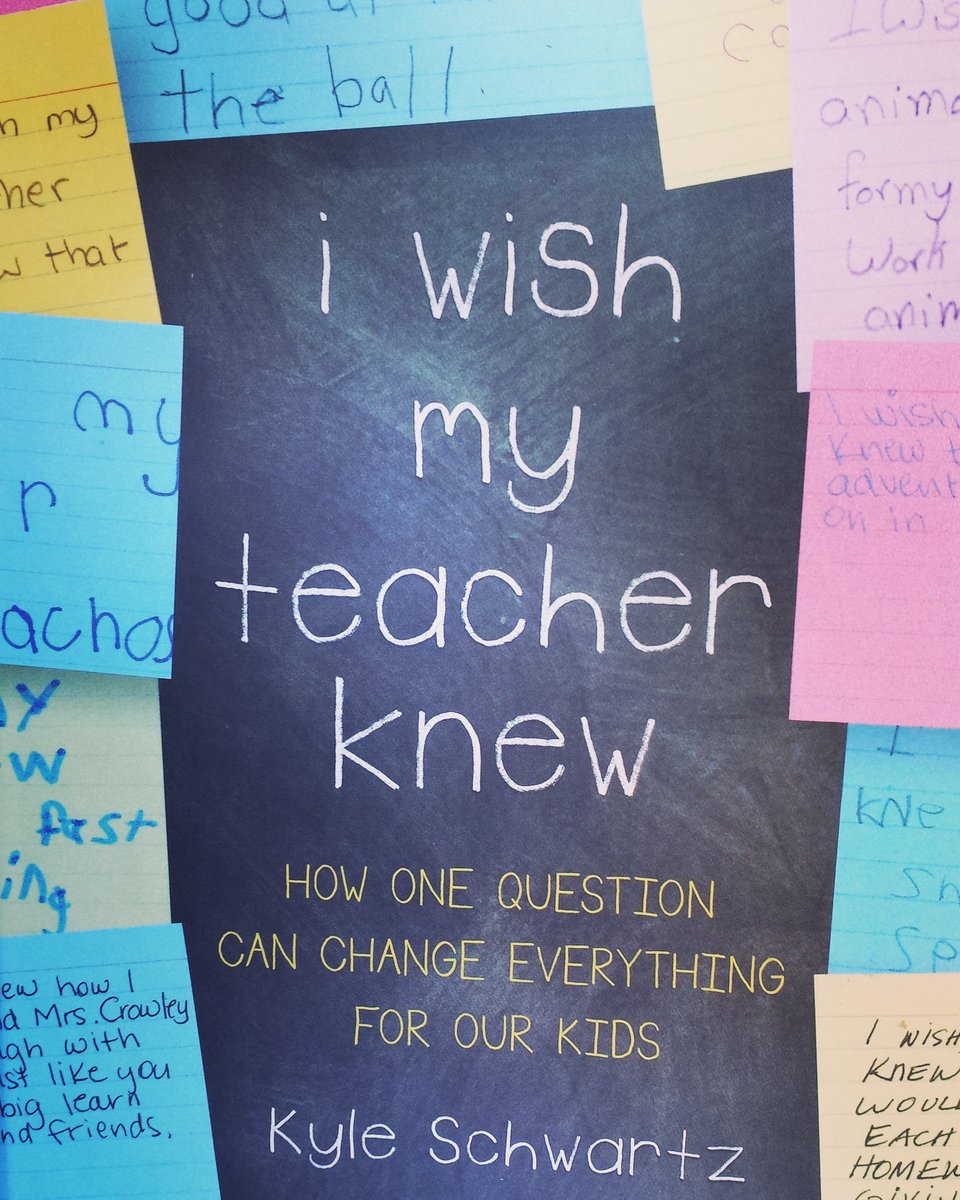 good at
the ball.
n my
her
w that
my
r
achos
ny
ow
fast
ing
ew how I
d Mrs. Crowley
gh with
st like you
big learn
nd friends.
i wish
my
teacher
knew
HOW ONE QUESTION
CAN CHANGE EVERYTHING
FOR OUR KIDS
Kyle Schwartz
co
I wis
anima
for my
Work
anim
I wish
knew t
advent
on in
I
kne
Sh
Sp
I WISH
KNEW
WOUL
EACH
HOMEW